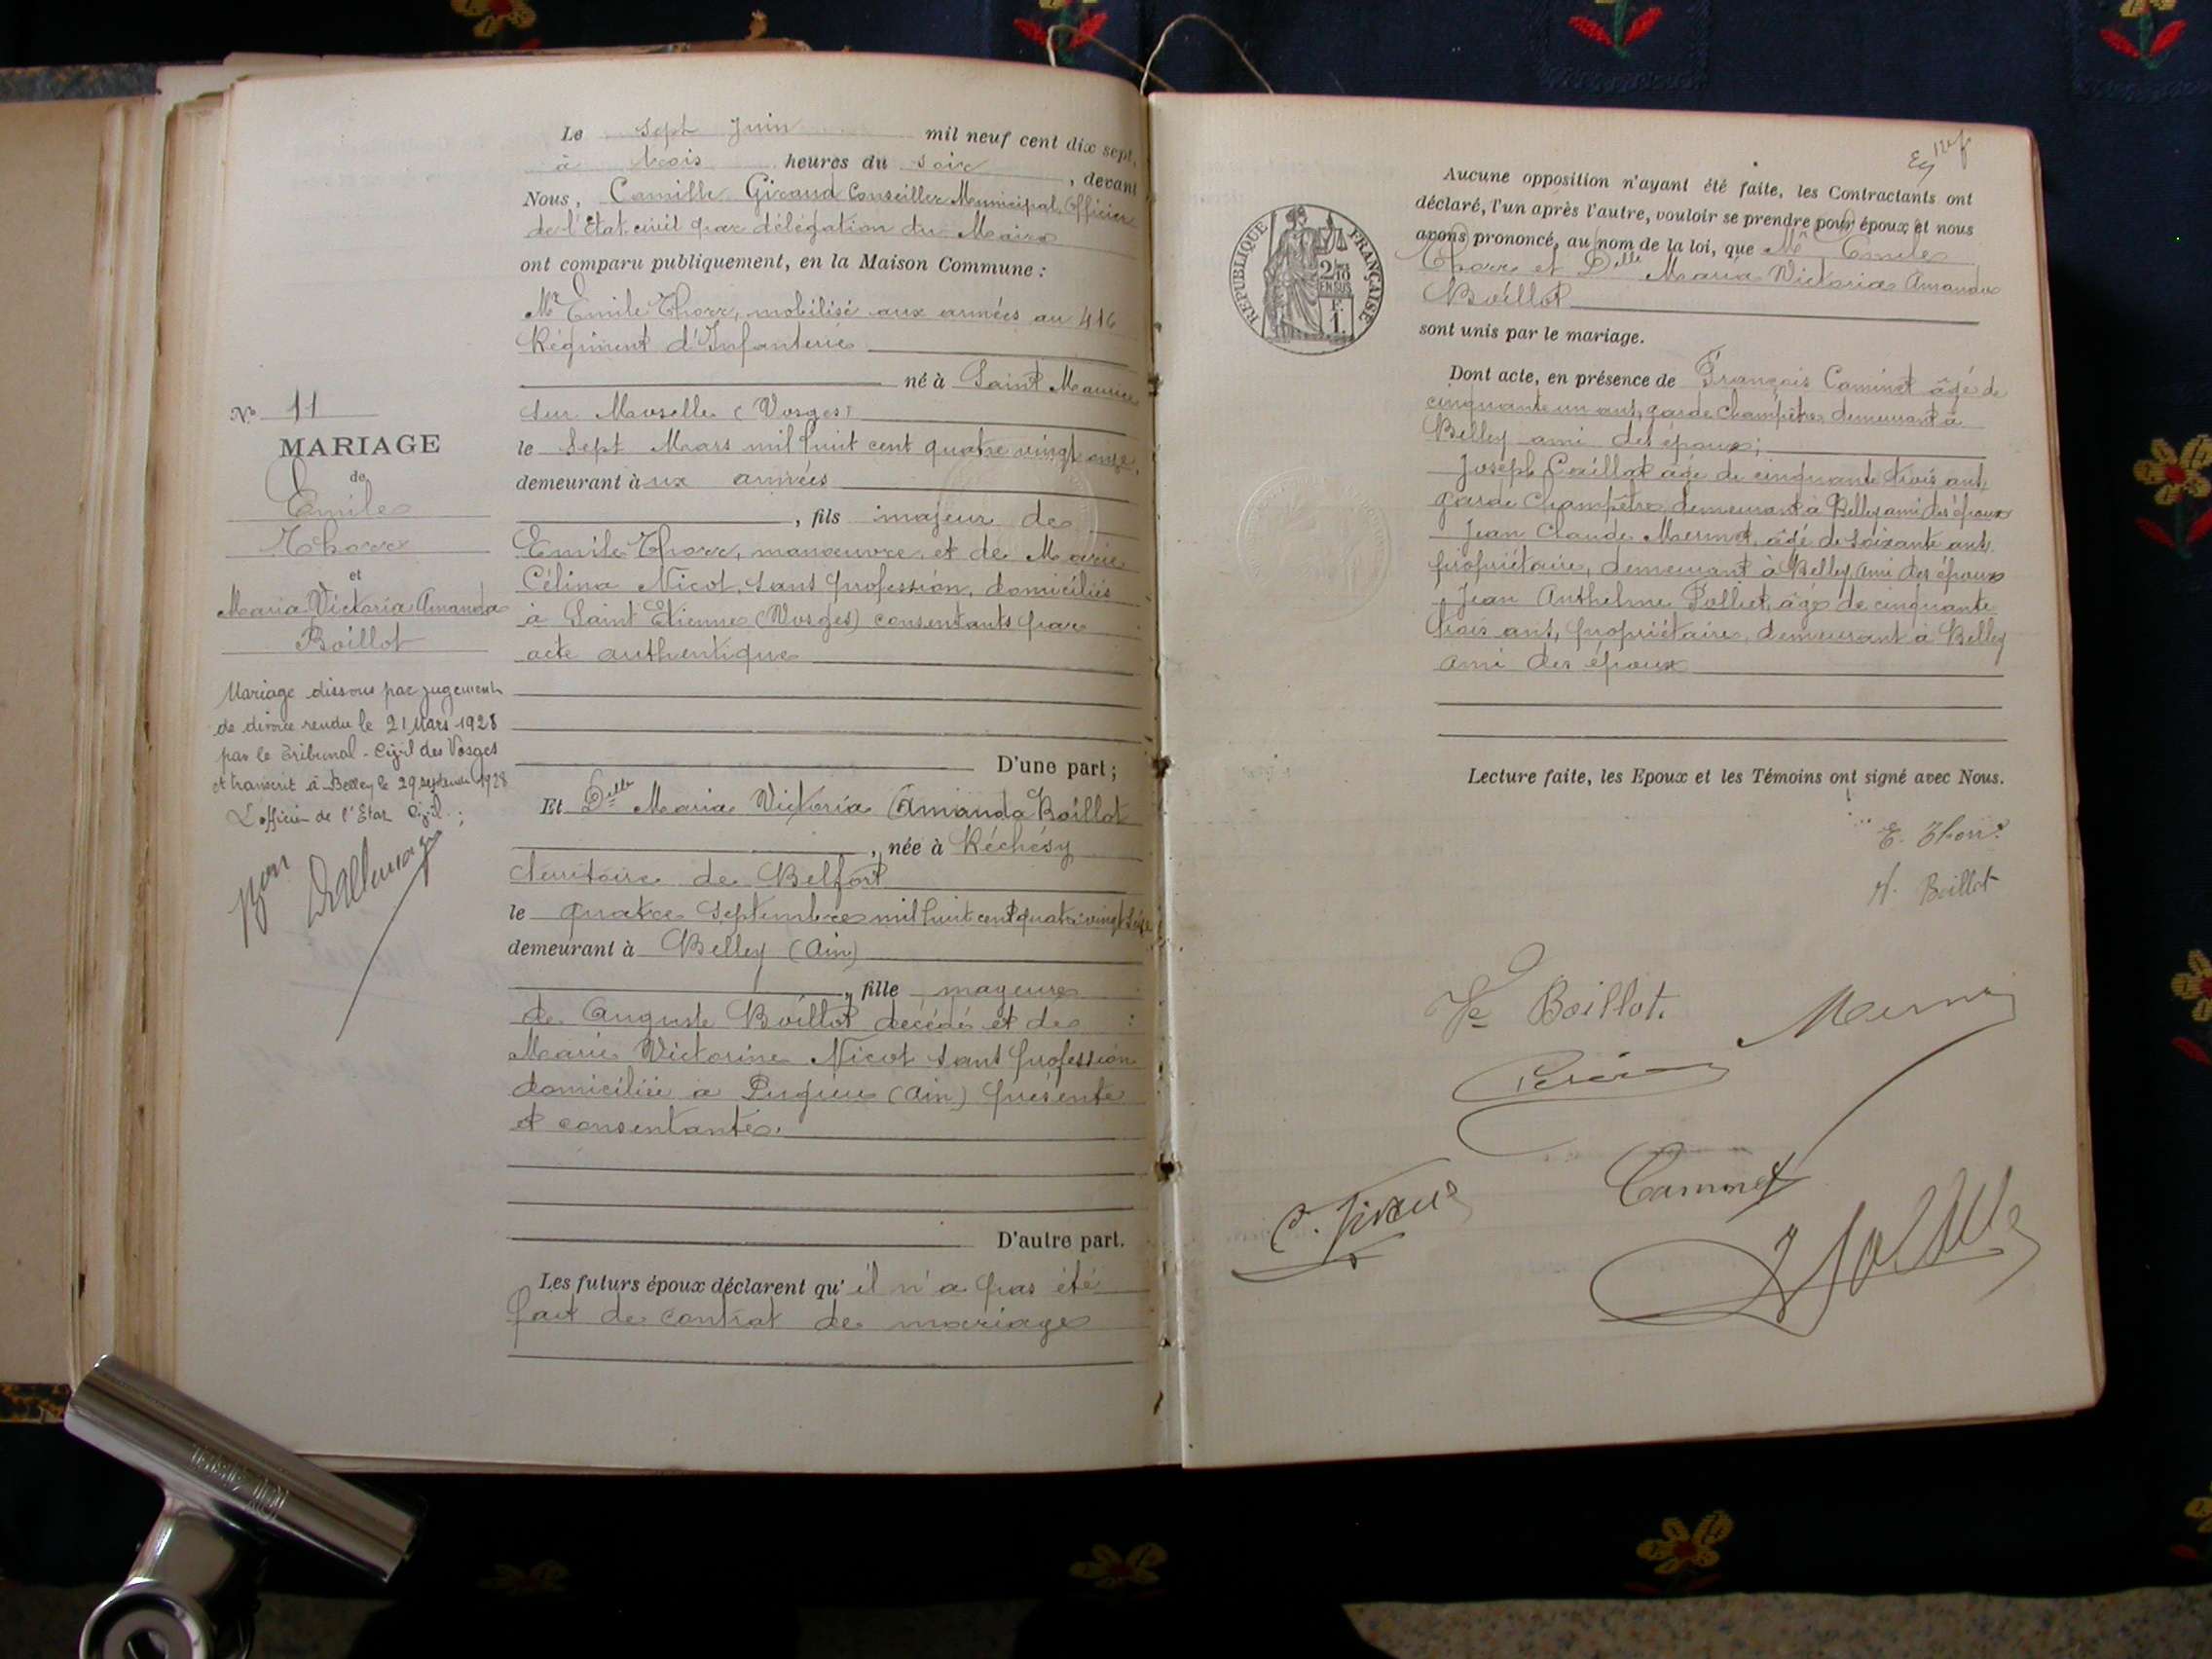 Le sept Juin mil neuf cent dix sept,
à trois heures du soir, devant
Nous, Camille Giraud Conseiller Municipal, Officier
de l'Etat civil par délégation du Maire
ont comparu publiquement, en la Maison Commune :
Mr Emile Thorr, mobilisé aux armées au 416
Régiment d'Infanterie
né à Saint Maurice
sur Moselle (Vosges)
le Sept Mars mil huit cent quatre vingt onze,
demeurant à ux armées
, fils majeur de
Emile Thorr, manœuvre, et de Marie
Célina Nicot, sans profession, domiciliés
à Saint Etienne (Vosges) consentants par
acte authentique
D'une part ;
Et Delle Maria Victoria Amanda Boillot
, née à Réchésy
territoire de Belfort
le quatre Septembre mil huit cent quatre vingt seize
demeurant à Belley (Ain)
, fille mageure
de Auguste Boillot décédé et de
Marie Victorine Nicot sans profession
domiciliée à Pugieu (Ain) présente
et consentante.
D'autre part.
Les futurs époux déclarent qu' il n'a pas été
fait de contrat de mariage
No 11
MARIAGE
de
Emile
Thorr
et
Maria Victoria Amanda
Boillot
Mariage dissous par jugement
de divorce rendu le 21 Mars 1928
par le Tribunal Civil des Vosges
et transcrit à Belley le 29 septembre 1928
L'officier de l'Etat Civil ;
Dallemagne
REPUBLIQUE FRANÇAISE
2/10
EN SUS
F.
1.
Aucune opposition n'ayant été faite, les Contractants ont
déclaré, l'un après l'autre, vouloir se prendre pour époux et nous
avons prononcé, au nom de la loi, que Mr Emile
Thorr et Delle Maria Victoria Amanda
Boillot
sont unis par le mariage.
Dont acte, en présence de François Caminet âgé de
cinquante un ans, garde champêtre demeurant à
Belley ami des époux ;
Joseph âgé de cinquante trois ans,
garde champêtre demeurant à Belley ami des époux
Jean Claude Mermet, âgé de soixante ans,
propriétaire, demeurant à Belley, ami des époux
Jean Anthelme Folliet, âgé de cinquante
trois ans, propriétaire, demeurant à Belley
ami des époux
Lecture faite, les Epoux et les Témoins ont signé avec Nous.
E. Thorr
A. Boillot
Ve Boillot.
Caminet